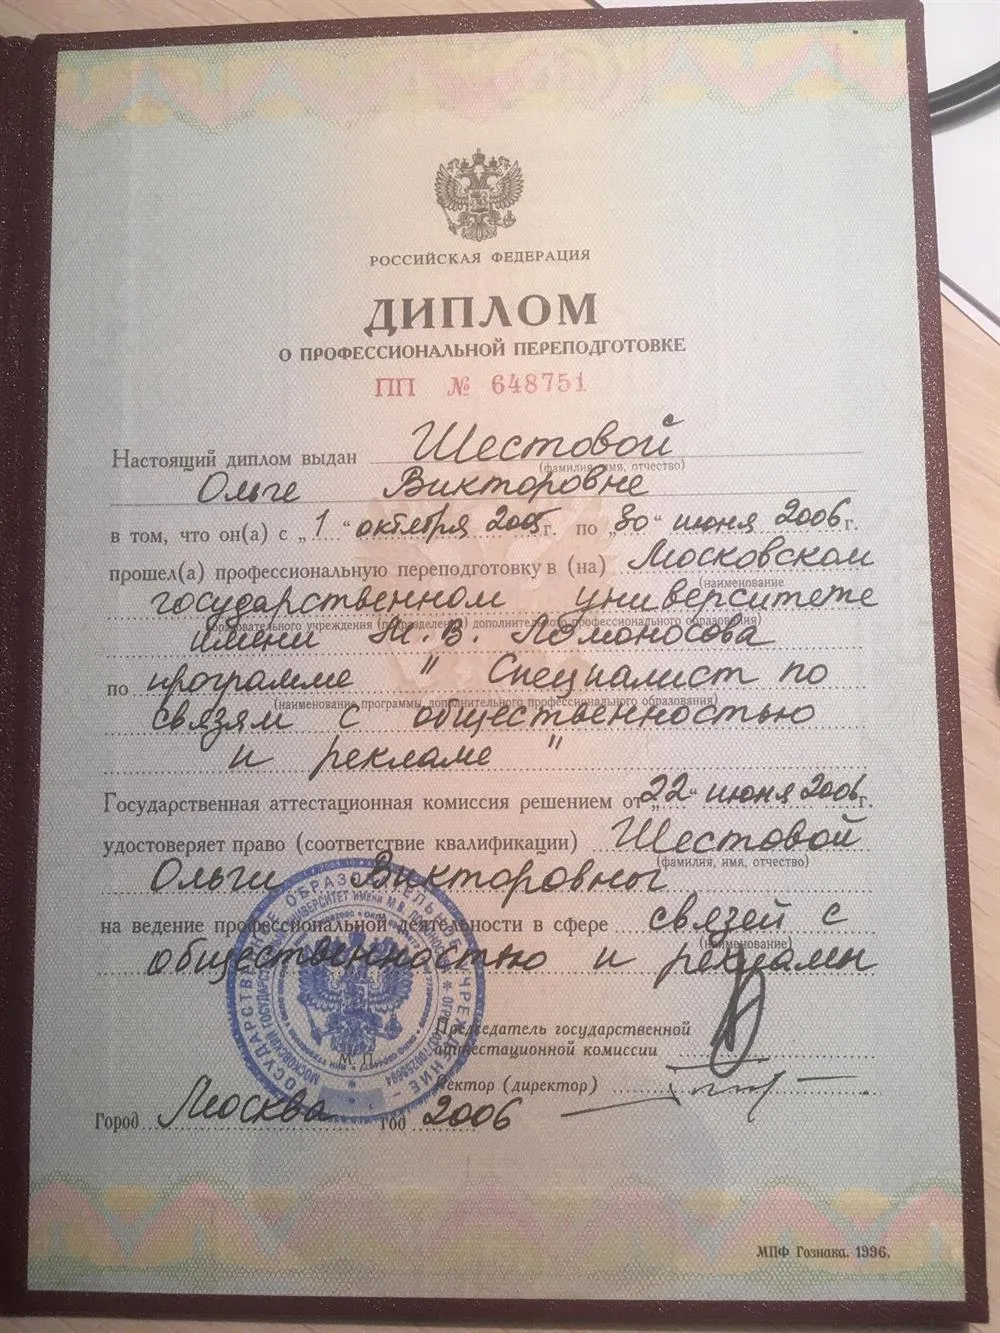 РОССИЙСКАЯ ФЕДЕРАЦИЯ
ДИПЛОМ
О ПРОФЕССИОНАЛЬНОЙ ПЕРЕПОДГОТОВКЕ
ПП № 648751
Настоящий диплом выдан Шестовой
(фамилия, имя, отчество)
Ольге Викторовне
в том, что он(а) с „1“ октября 2005г. по „30“ июня 2006г.
прошел(а) профессиональную переподготовку в (на) Московском
(наименование
государственном университете
образовательного учреждения (подразделения) дополнительного профессионального образования)
имени М.В. Ломоносова
по программе "Специалист по
(наименование программы дополнительного профессионального образования)
связям с общественностью
и рекламе"
Государственная аттестационная комиссия решением от „22“ июня 2006г.
удостоверяет право (соответствие квалификации) Шестовой
(фамилия, имя, отчество)
Ольги Викторовны
на ведение профессиональной деятельности в сфере связей с
(наименование)
общественностью и рекламы
Председатель государственной
аттестационной комиссии
М. П.
Ректор (директор)
Город Москва год 2006
МПФ Гознака. 1996.